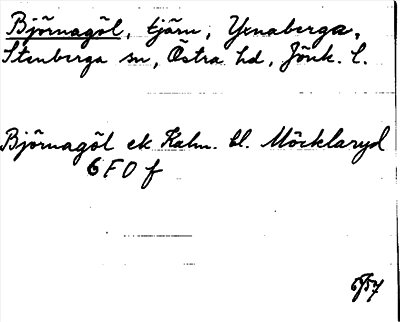 Björnagöl, tjärn, Yxnaberga,
Stenberga sn, Östra hd, Jönk. l.
Björnagöl ek Kalm. bl. Möcklaryd
6 F 0 f